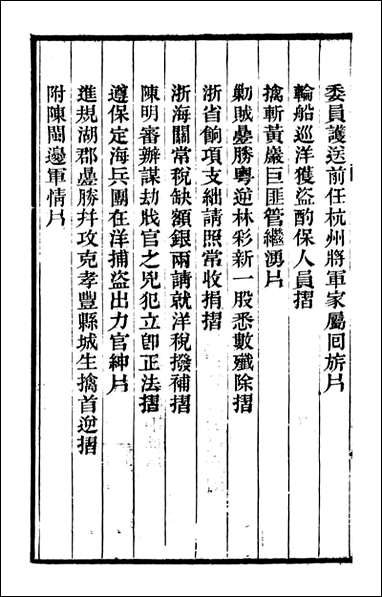 委員護送前任杭州將軍家屬回旂片
輪船巡洋獲盜酌保人員摺
擒斬黃巖巨匪管繼湧片
勦賊疊勝粵逆林彩新一股悉數殲除摺
浙省餉項支絀請照常收捐摺
浙海關常稅缺額銀兩請就洋稅撥補摺
陳明審辦謀劫戕官之兇犯立卽正法摺
遵保定海兵團在洋捕盜出力官紳片
進規湖郡疊勝幷攻克孝豐縣城生擒首逆摺
附陳閩邊軍情片